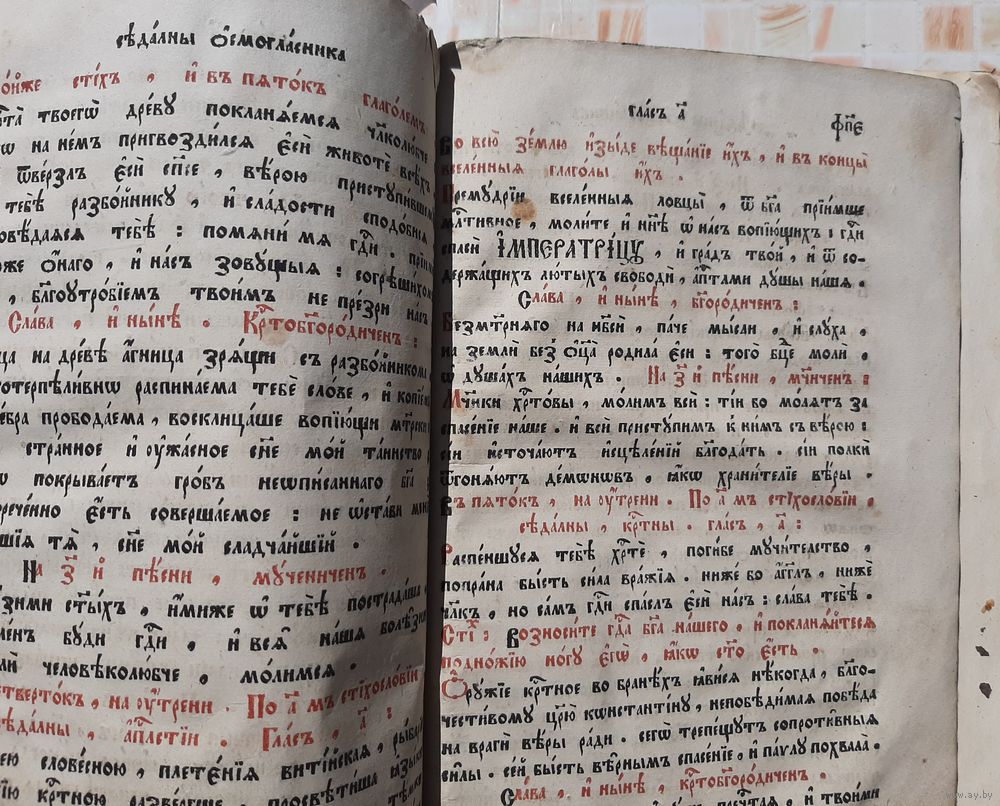 сѣда́лны ѻ҆смогла́сника
стїхъ , и҆ въ пѧто́къ глаго́лемъ
твоегѡ̀ дре́вꙋ покланѧ́емсѧ чл҃колю́бче
на не́мъ пригвозди́лсѧ є҆сѝ животѐ всѣ́хъ
ѿве́рзлъ є҆сѝ сп҃се , вѣ́рою пристꙋпи́вшемꙋ
тебѣ̀ разбо́йникꙋ , и҆ сла́дости сподо́бисѧ
тебѣ̀ : помѧни́ мѧ гд҇и .
ѻ҆́наго , и҆ на́съ зовꙋ́щыѧ : согрѣши́хомъ
, бл҃гоꙋтро́бїемъ твои́мъ не пре́зри на́съ
Сла́ва , и҆ ны́нѣ . Крⷭ҇тобг҃оро́диченъ :
на дре́вѣ а҆́гница зрѧ́щи съ разбо́йникома
распина́ема тебѐ сло́ве , и҆ копїе́мъ
пробода́ема , восклица́ше вопїю́щи мт҃рски
стра́нное и҆ ᲂу҆жа́сное сн҃е мо́й та́инство
покрыва́етъ гро́бъ неѡпи́саннаго бг҃а :
є҆́сть соверша́емое : не ѡ҆ста́ви менѐ
тѧ̀ , сн҃е мо́й сладча́йшїй .
На з҃ и҆ пѣ́сни , мꙋ́чениченъ .
ст҃ы́хъ , и҆̀миже ѡ҆ тебѣ̀ пострада́ша
бꙋ́ди гд҇и , и҆ всѧ̑ на́шѧ болѣ̑зни
человѣколю́бче , мо́лимсѧ .
на ᲂу҆́трени . По а҃ мъ стїхосло́вїи
сѣда́лны , а҆пⷭ҇лстїи . Гла́съ , а҃ :
слове́сною , плете́нїѧ виті́йскаѧ ,
крⷭ҇тною
гла́съ а҃
фп҃є
Во всю̀ зе́млю и҆зы́де вѣща́нїе и҆́хъ , и҆ въ концы̀
вселе́нныѧ глаго́лы и҆́хъ .
Премꙋ́дрїи вселе́нныѧ ловцы̀ , ѿ бг҃а прїи́мше
млⷭ҇тивное , моли́те и҆ нн҃ѣ ѡ҆ на́съ вопїю́щихъ : гд҇и
спасѝ І҆МПЕРАТРІ́ЦꙊ , и҆ гра́дъ тво́й , и҆ ѿ со-
держа́щихъ лю́тыхъ свободѝ , а҆пⷭ҇лтами дꙋ́шы на́шѧ .
Сла́ва , и҆ ны́нѣ , бг҃оро́диченъ :
Безмт҃рнѧго на нб҃сѝ , па́че мы́сли , и҆ слꙋ́ха ,
на землѝ без̾ ѻ҆ц҃а̀ родила̀ є҆сѝ : того̀ бц҃е молѝ ,
ѡ҆ дꙋша́хъ на́шихъ . На з҃ и҆ пѣ́сни , мч҃нченъ :
Мч҃нки хрⷭ҇то́вы , мо́лимъ всѝ : ті́и бо мо́лѧтъ за
спасе́нїе на́ше . и҆ всѝ пристꙋ́пимъ к ни́мъ съ вѣ́рою :
сїѝ и҆сточа́ютъ и҆сцѣле́нїй бл҃года́ть . сїѝ полкѝ
ѿгонѧ́ютъ де́мѡнѡвъ , ꙗ҆́кѡ храни́телїе вѣ́ры .
Въ пѧто́къ , на ᲂу҆́трени . По а҃ мъ стїхосло́вїи ,
сѣда́лны , крⷭ҇тны . гла́съ , а҃ :
Распе́ншꙋсѧ тебѣ̀ хрⷭ҇тѐ , поги́бе мꙋчи́телство ,
попра́на бы́сть си́ла вра́жїѧ . ниже́ бо а҆́гг҃лъ , нижѐ
чл҃къ , но са́мъ гд҇и спа́слъ є҆сѝ на́съ : сла́ва тебѣ̀ .
Сті́х : Возноси́те гдⷭ҇а бг҃а на́шего , и҆ покланѧ́йтесѧ
подно́жїю но́гꙋ є҆гѡ̀ , ꙗ҆́кѡ ст҃о є҆́сть .
Ѻ҆рꙋ́жїе крⷭ҇тное во бра́нехъ ꙗ҆ви́сѧ нѣ́когда , бл҃го-
чести́вомꙋ цр҃ю̀ кѡнстанті́нꙋ , непобѣди́маѧ побѣ́да
на врагѝ вѣ́ры ра́ди . сегѡ̀ трепе́щꙋтъ сопроти̑вныѧ
си̑лы . се́й бы́сть вѣ̑рнымъ спасе́нїе , и҆ па́ѵлꙋ похвала̀ .
Сла́ва , и҆ ны́нѣ , крⷭ҇тобг҃оро́диченъ .
www.ay.by